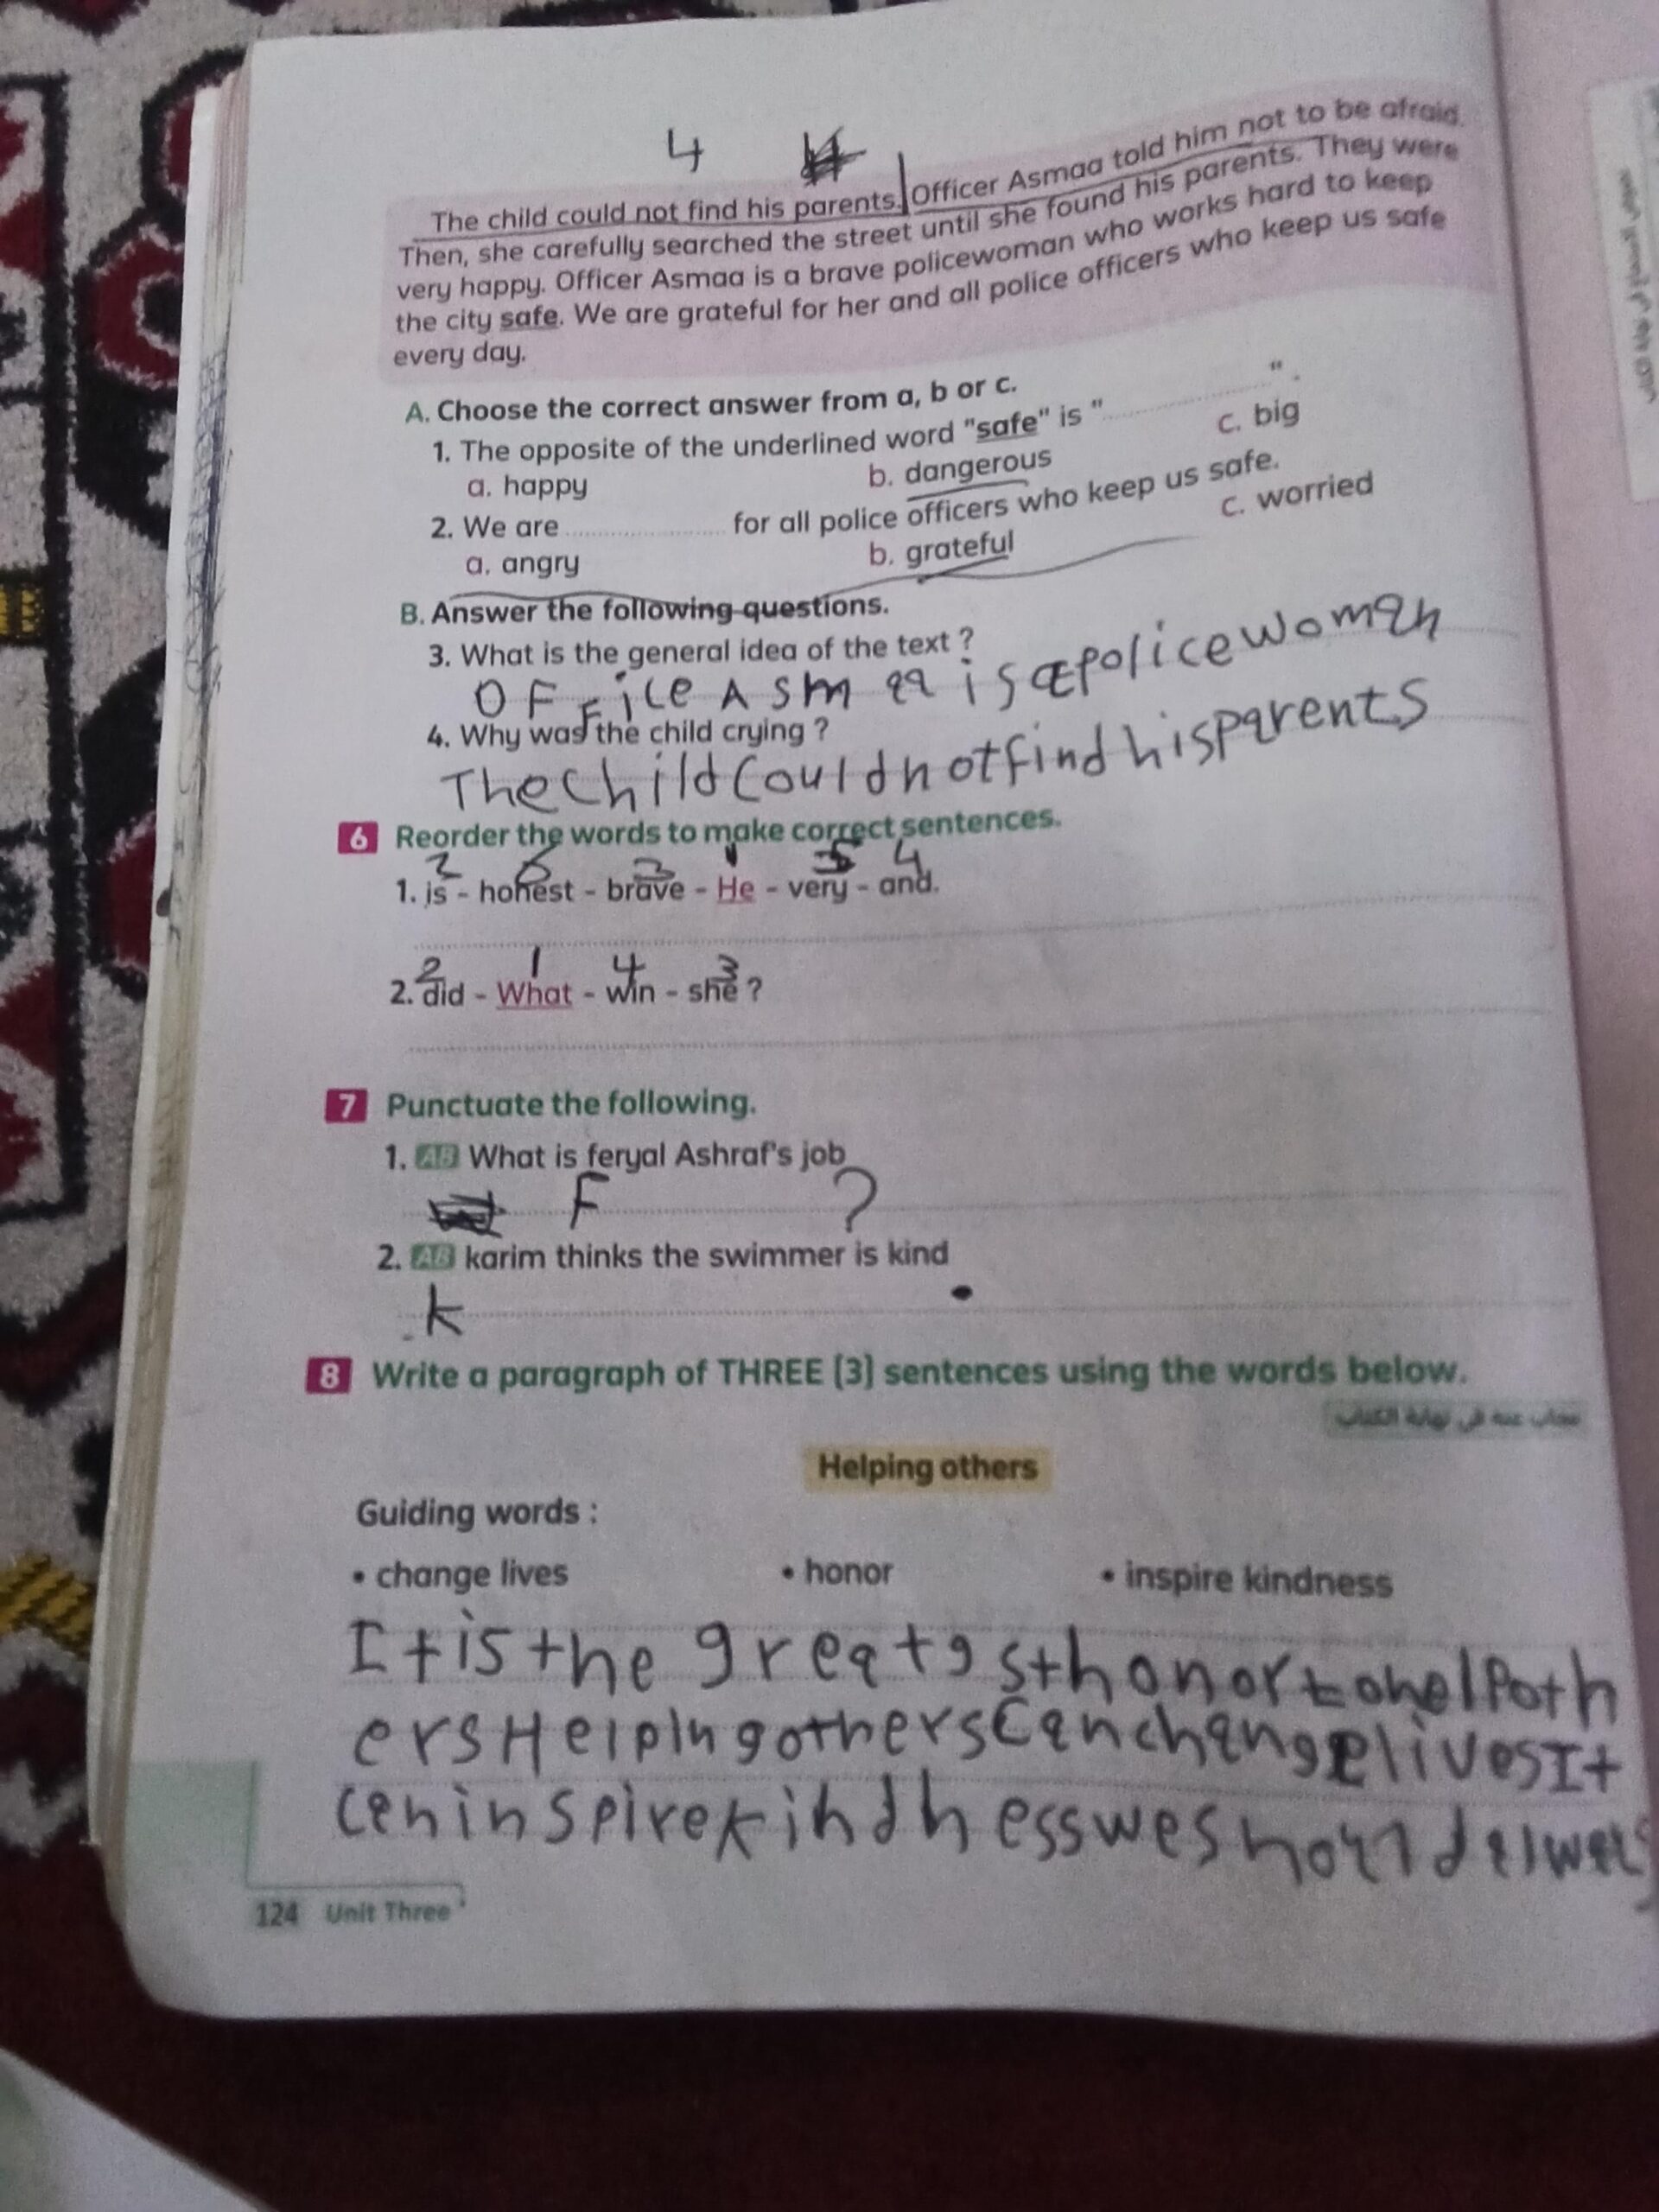 4
The child could not find his parents. Officer Asmaa told him not to be afraid.
Then, she carefully searched the street until she found his parents. They were
very happy. Officer Asmaa is a brave policewoman who works hard to keep
the city safe. We are grateful for her and all police officers who keep us safe
every day.
A. Choose the correct answer from a, b or c.
1. The opposite of the underlined word "safe" is "....................".
a. happy b. dangerous c. big
2. We are .................... for all police officers who keep us safe.
a. angry b. grateful c. worried
B. Answer the following questions.
3. What is the general idea of the text ?
OFFice Asmaa is a policewoman
4. Why was the child crying ?
The child could not find his parents
6 Reorder the words to make correct sentences.
2 6 3 1 5 4
1. is - honest - brave - He - very - and.
2 1 4 3
2. did - What - win - she ?
7 Punctuate the following.
1. AB What is feryal Ashraf's job
F ?
2. AB karim thinks the swimmer is kind
k .
8 Write a paragraph of THREE (3) sentences using the words below.
مجاب عنه في نهاية الكتاب
Helping others
Guiding words :
• change lives • honor • inspire kindness
It is the greatest honor to help oth
ers Helping others can change lives It
can inspire kindness we should always
124 Unit Three